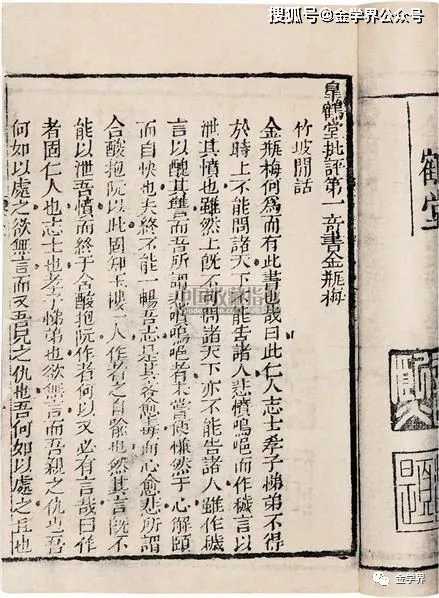 搜狐号@金学界公众号
鶴堂
皋鶴堂批評第一奇書金瓶梅
竹坡閒話
金瓶梅何為而有此書也哉曰此仁人志士孝子悌弟不得
於時上不能問諸天下不能告諸人悲憤嗚唈而作穢言以
泄其憤也雖然上既不可問諸天下亦不能告諸人雖作穢
言以醜其讐而吾所謂悲憤嗚唈者未嘗便慊然于心解頤
而自快也夫終不能一暢吾志是其言愈毒而心愈悲所謂
含酸抱阮以此固知玉樓一人作者之自喻也然其言既不
能以泄吾憤而終于含酸抱阮作者何以又必有言哉曰作
者固仁人也志士也孝子悌弟也欲無言而吾親之仇也吾
何如以處之欲無言而又吾兄之仇也吾何如以處之且也
金学界